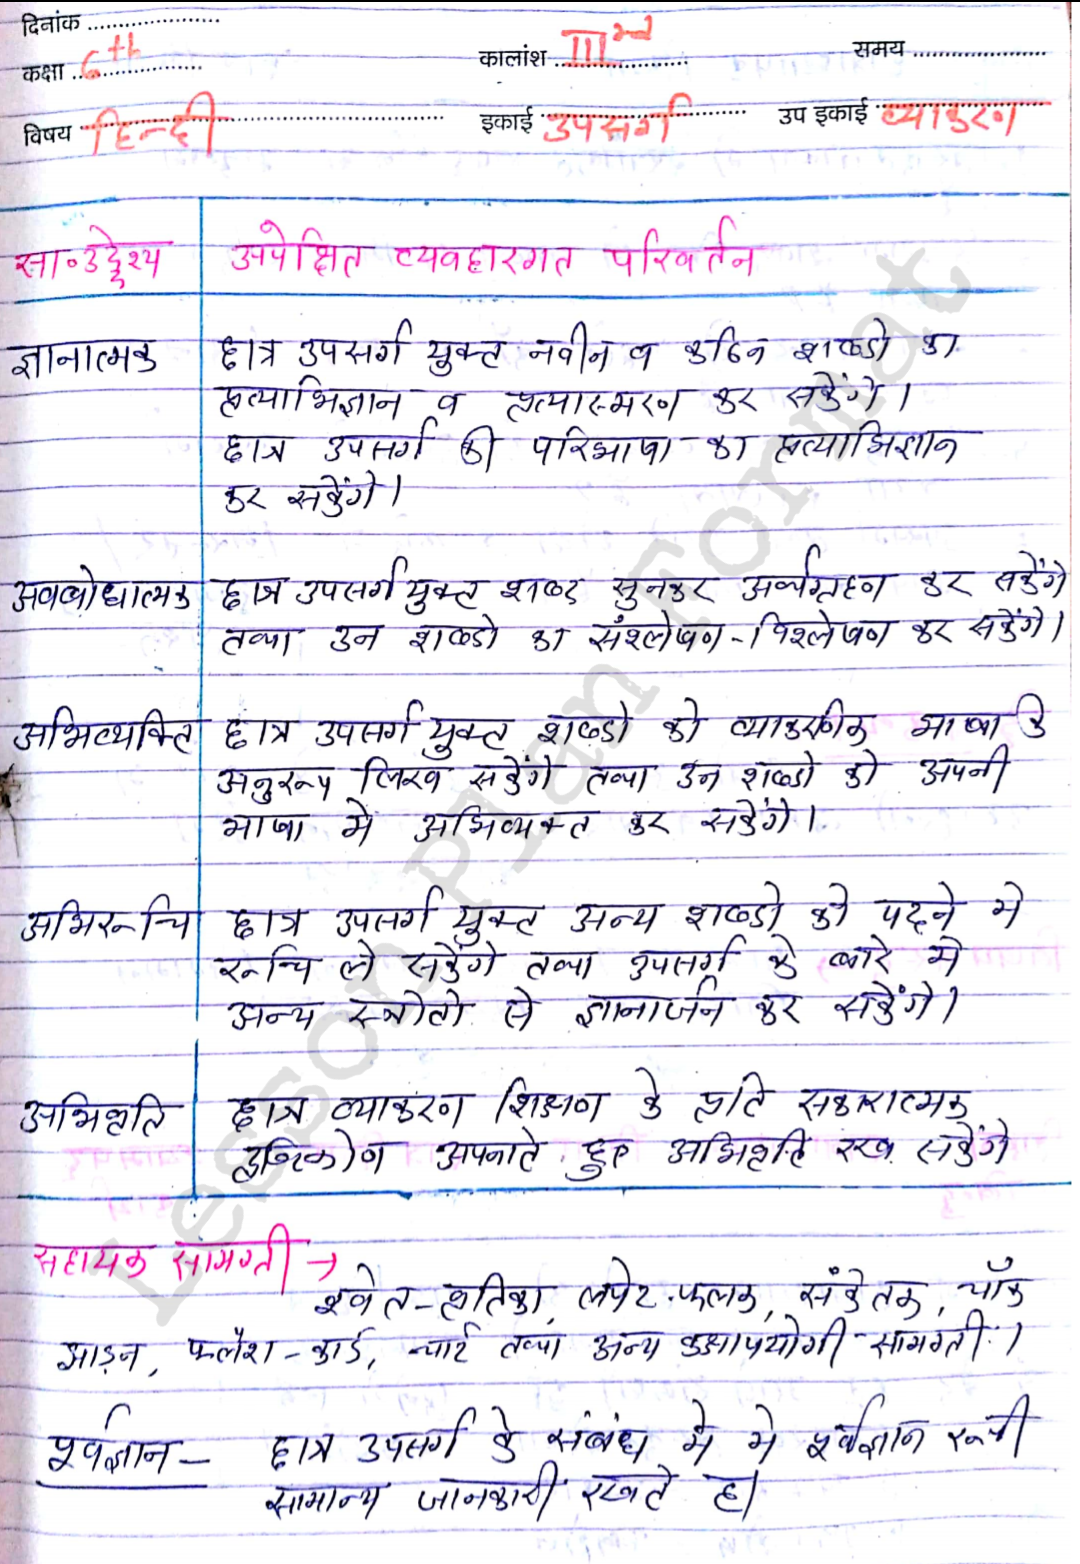 दिनांक ....................
कक्षा 6th कालांश IIIrd समय ....................
विषय हिन्दी इकाई उपसर्ग उप इकाई व्याकरण
सा॰उद्देश्य उपपेक्षित व्यवहारगत परिवर्तन
ज्ञानात्मक छात्र उपसर्ग युक्त नवीन व कठिन शब्दो का
प्रत्याभिज्ञान व प्रत्यास्मरण कर सकेंगे।
छात्र उपसर्ग की परिभाषा का प्रत्याभिज्ञान
कर सकेंगे।
अवबोधात्मक छात्र उपसर्ग युक्त शब्द सुनकर अर्थग्रहण कर सकेंगे
तथा उन शब्दो का संश्लेषण-विश्लेषण कर सकेंगे।
अभिव्यक्ति छात्र उपसर्ग युक्त शब्दो को भाषा के
अनुरूप लिख सकेंगे तथा उन शब्दो को अपनी
भाषा मे अभिव्यक्त कर सकेंगे।
अभिरूचि छात्र उपसर्ग युक्त अन्य शब्दो को पढने मे
रूचि ले सकेंगे तथा उपसर्ग के बारे मे
अन्य स्त्रोतो से ज्ञानार्जन कर सकेंगे।
अभिवृति छात्र व्याकरण शिक्षण के प्रति सकारात्मक
दृष्टिकोण अपनाते हुए अभिवृति रख सकेंगे
सहायक सामग्री →
श्वेत-वर्तिका, लपेट-फलक, संकेतक, चॉक
झाड़न, फ्लैश-कार्ड, चार्ट तथा अन्य कक्षापयोगी सामग्री।
पूर्वज्ञान- छात्र उपसर्ग के संबंध मे मे पूर्वज्ञान रूपी
सामान्य जानकारी रखते है।
Lesson Plan Format